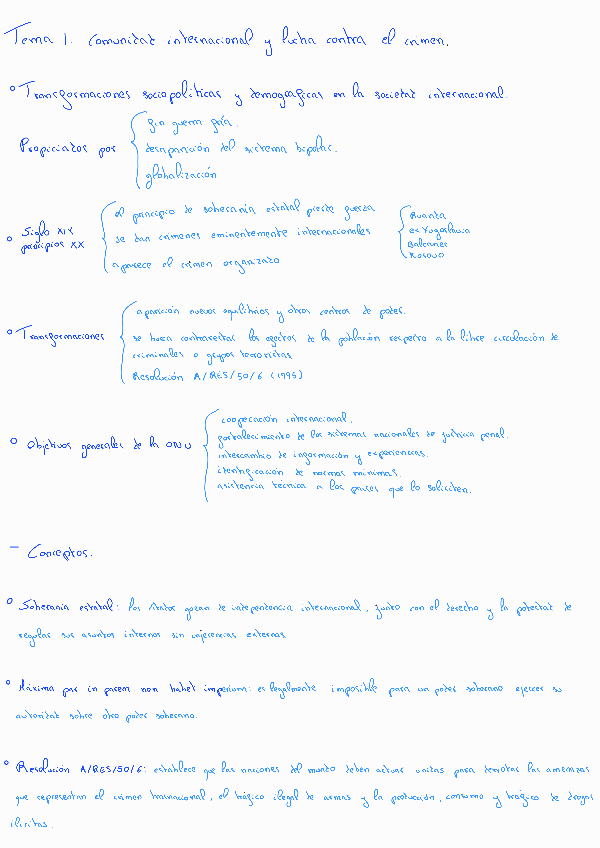 Tema 1. Comunidad internacional y lucha contra el crimen.
Transformaciones sociopolíticas y demográficas en la sociedad internacional.
Propiciados por
fin guerra fría.
desaparición del sistema bipolar.
globalización
Siglo XIX
principios XX
el principio de soberanía estatal pierde fuerza
se dan crímenes eminentemente internacionales
aparece el crimen organizado
Ruanda
ex Yugoslavia
Balcanes
Kosovo
Transformaciones
aparición nuevos equilibrios y otros centros de poder.
se busca contrarrestar los efectos de la población respecto a la libre circulación de
criminales o grupos terroristas
Resolución A/RES/50/6 (1995)
Objetivos generales de la ONU
cooperación internacional.
fortalecimiento de los sistemas nacionales de justicia penal.
intercambio de información y experiencias.
identificación de normas mínimas.
asistencia técnica a los países que lo soliciten.
– Conceptos.
Soberanía estatal: los Estados gozan de independencia internacional, junto con el derecho y la potestad de
regular sus asuntos internos sin injerencias externas.
Máxima par in parem non habet imperium: es legalmente imposible para un poder soberano ejercer su
autoridad sobre otro poder soberano.
Resolución A/RES/50/6: establece que las naciones del mundo deben actuar unidas para derrotar las amenazas
que representan el crimen transnacional, el tráfico ilegal de armas y la producción, consumo y tráfico de drogas
ilícitas.